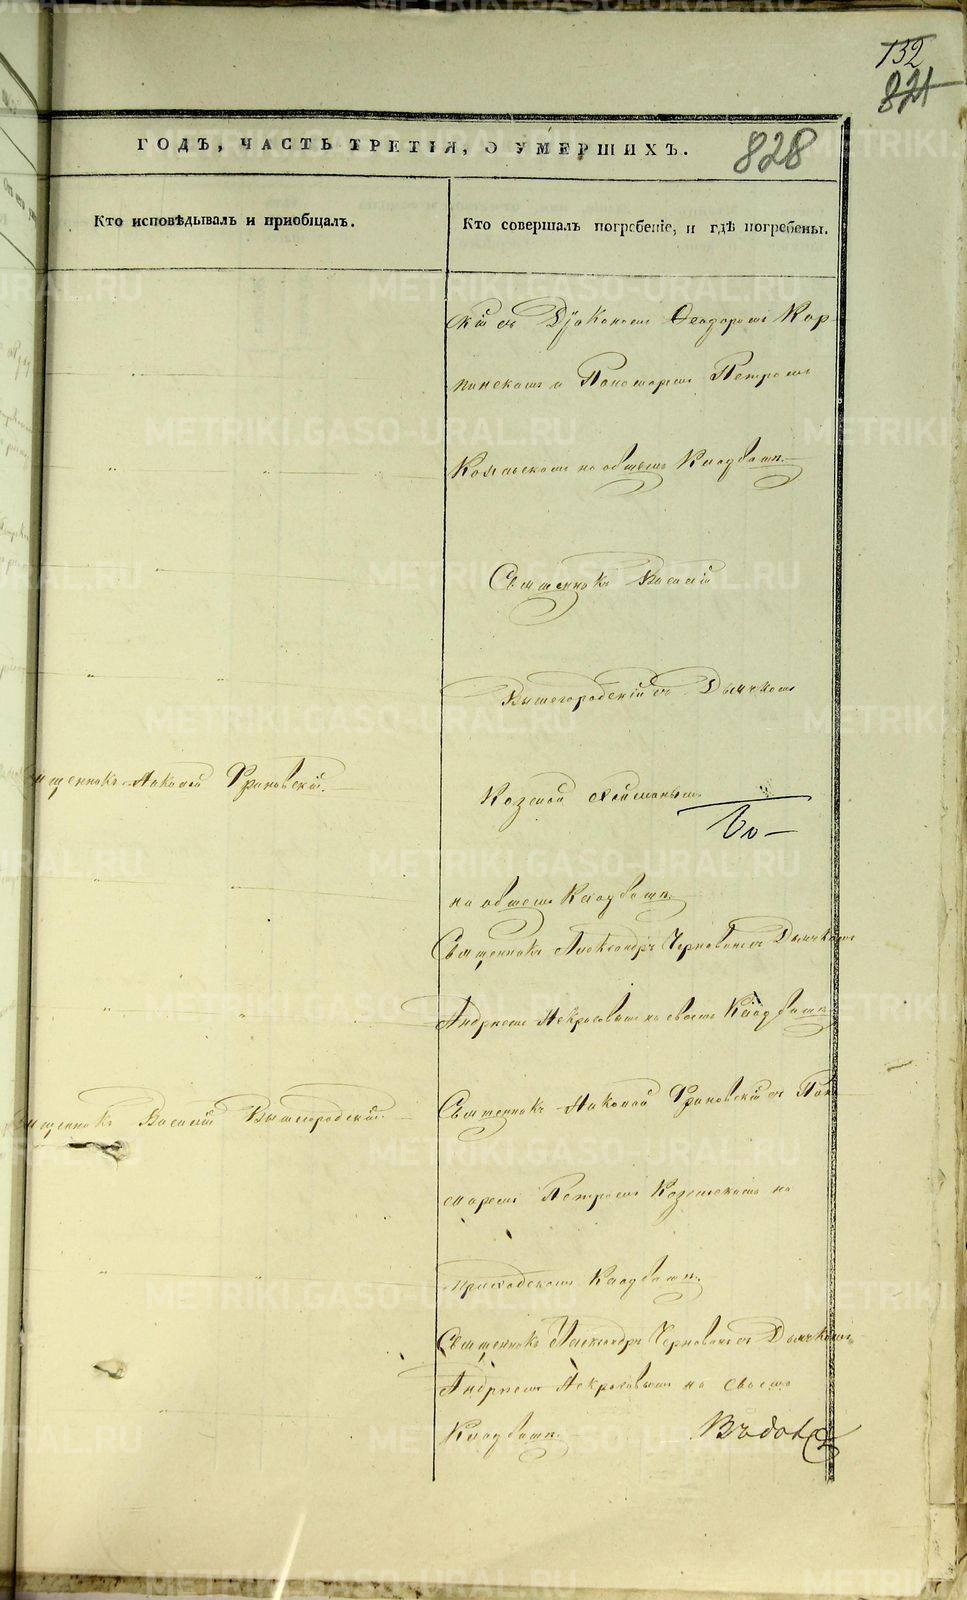 132
821
ГОДЪ, ЧАСТЬ ТРЕТІЯ, О УМЕРШИХЪ.
828
Кто исповѣдывалъ и пріобщалъ.
Кто совершалъ погребеніе, и гдѣ погребены.
скій съ Діакономъ Ѳеодоромъ Кар-
пинскимъ и Пономаремъ Петромъ
на общемъ Кладбищѣ.
Священникъ Василій
Вышегородскій съ Дьячкомъ
Священникъ Николай Франовскій.
Козмой
на общемъ Кладбищѣ.
Священникъ Александръ Черновъ съ Дьячкомъ
Андреемъ Некрасовымъ на своемъ Кладбищѣ
Священникъ Василій Вышегородскій.
Священникъ Николай Франовскій съ Поно-
маремъ Петромъ на
приходскомъ Кладбищѣ.
Священникъ Александръ Черновъ съ Дьячкомъ
Андреемъ Некрасовымъ на своемъ
Кладбищѣ.
METRIKI.GASO-URAL.RU